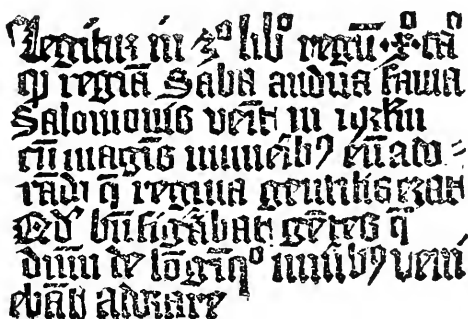 Legitur in 3º libº regū · xº · caº
qͥ regīa Saba audita fama
Salomonis venit in ihrlm
cū magis munerib⁹ eū ado=
rādi q̄ regina gentilis erat
Qd̄ bn̄ figᷓbat gētes q̄
dn̄m de lōginqº munib⁹ veni
ebāt adorare